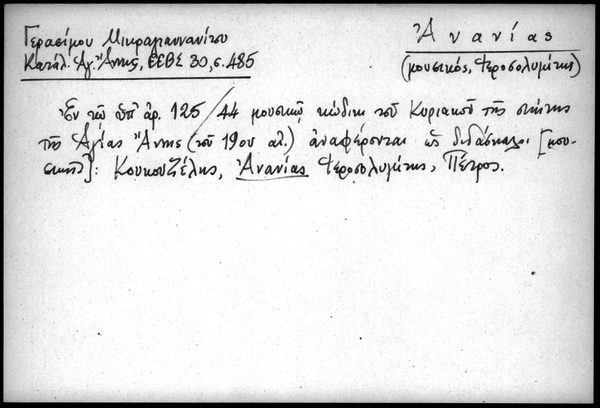 Γερασίμου Μικραγιαννανίτου
Κατάλ. Ἁγ. Ἄννης, ΕΕΒΣ 30, σ. 485
Ἀνανίας
(μουσικός, Ἱεροσολυμίτης)
Ἐν τῷ ὑπ' ἀρ. 125/44 μουσικῷ κώδικι τοῦ Κυριακοῦ τῆς σκήτης
τῆς Ἁγίας Ἄννης (τοῦ 19ου αἰ.) ἀναφέρονται ὡς διδάσκαλοι [μου-
σικῆς]: Κουκουζέλης, Ἀνανίας Ἱεροσολυμίτης, Πέτρος.